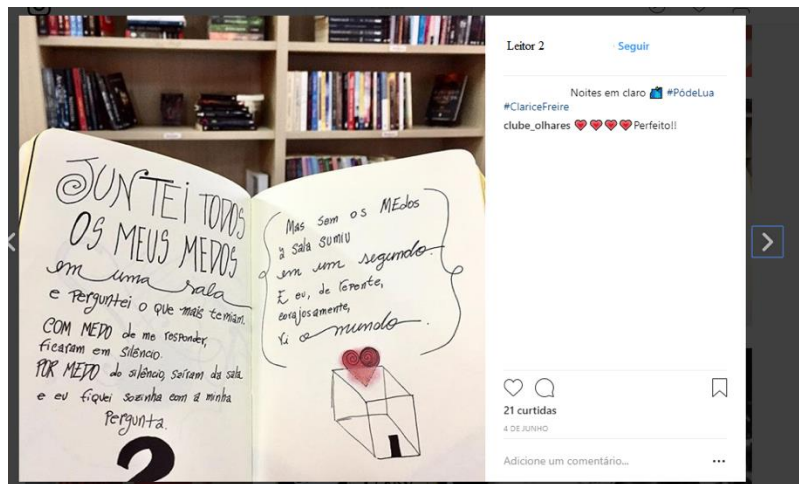 JUNTEI TODOS
OS MEUS MEDOS
em uma sala
e perguntei o que mais temiam.
COM MEDO de me responder,
ficaram em silêncio.
POR MEDO do silêncio, saíram da sala
e eu fiquei sozinha com a minha
Pergunta.
?
Mas sem os MEdos
a sala sumiu
em um segundo.
E eu, de repente,
corajosamente,
vi o mundo.
Leitor 2
Seguir
Noites em claro #PódeLua
#ClariceFreire
clube_olhares Perfeito!!
21 curtidas
4 DE JUNHO
Adicione um comentário...